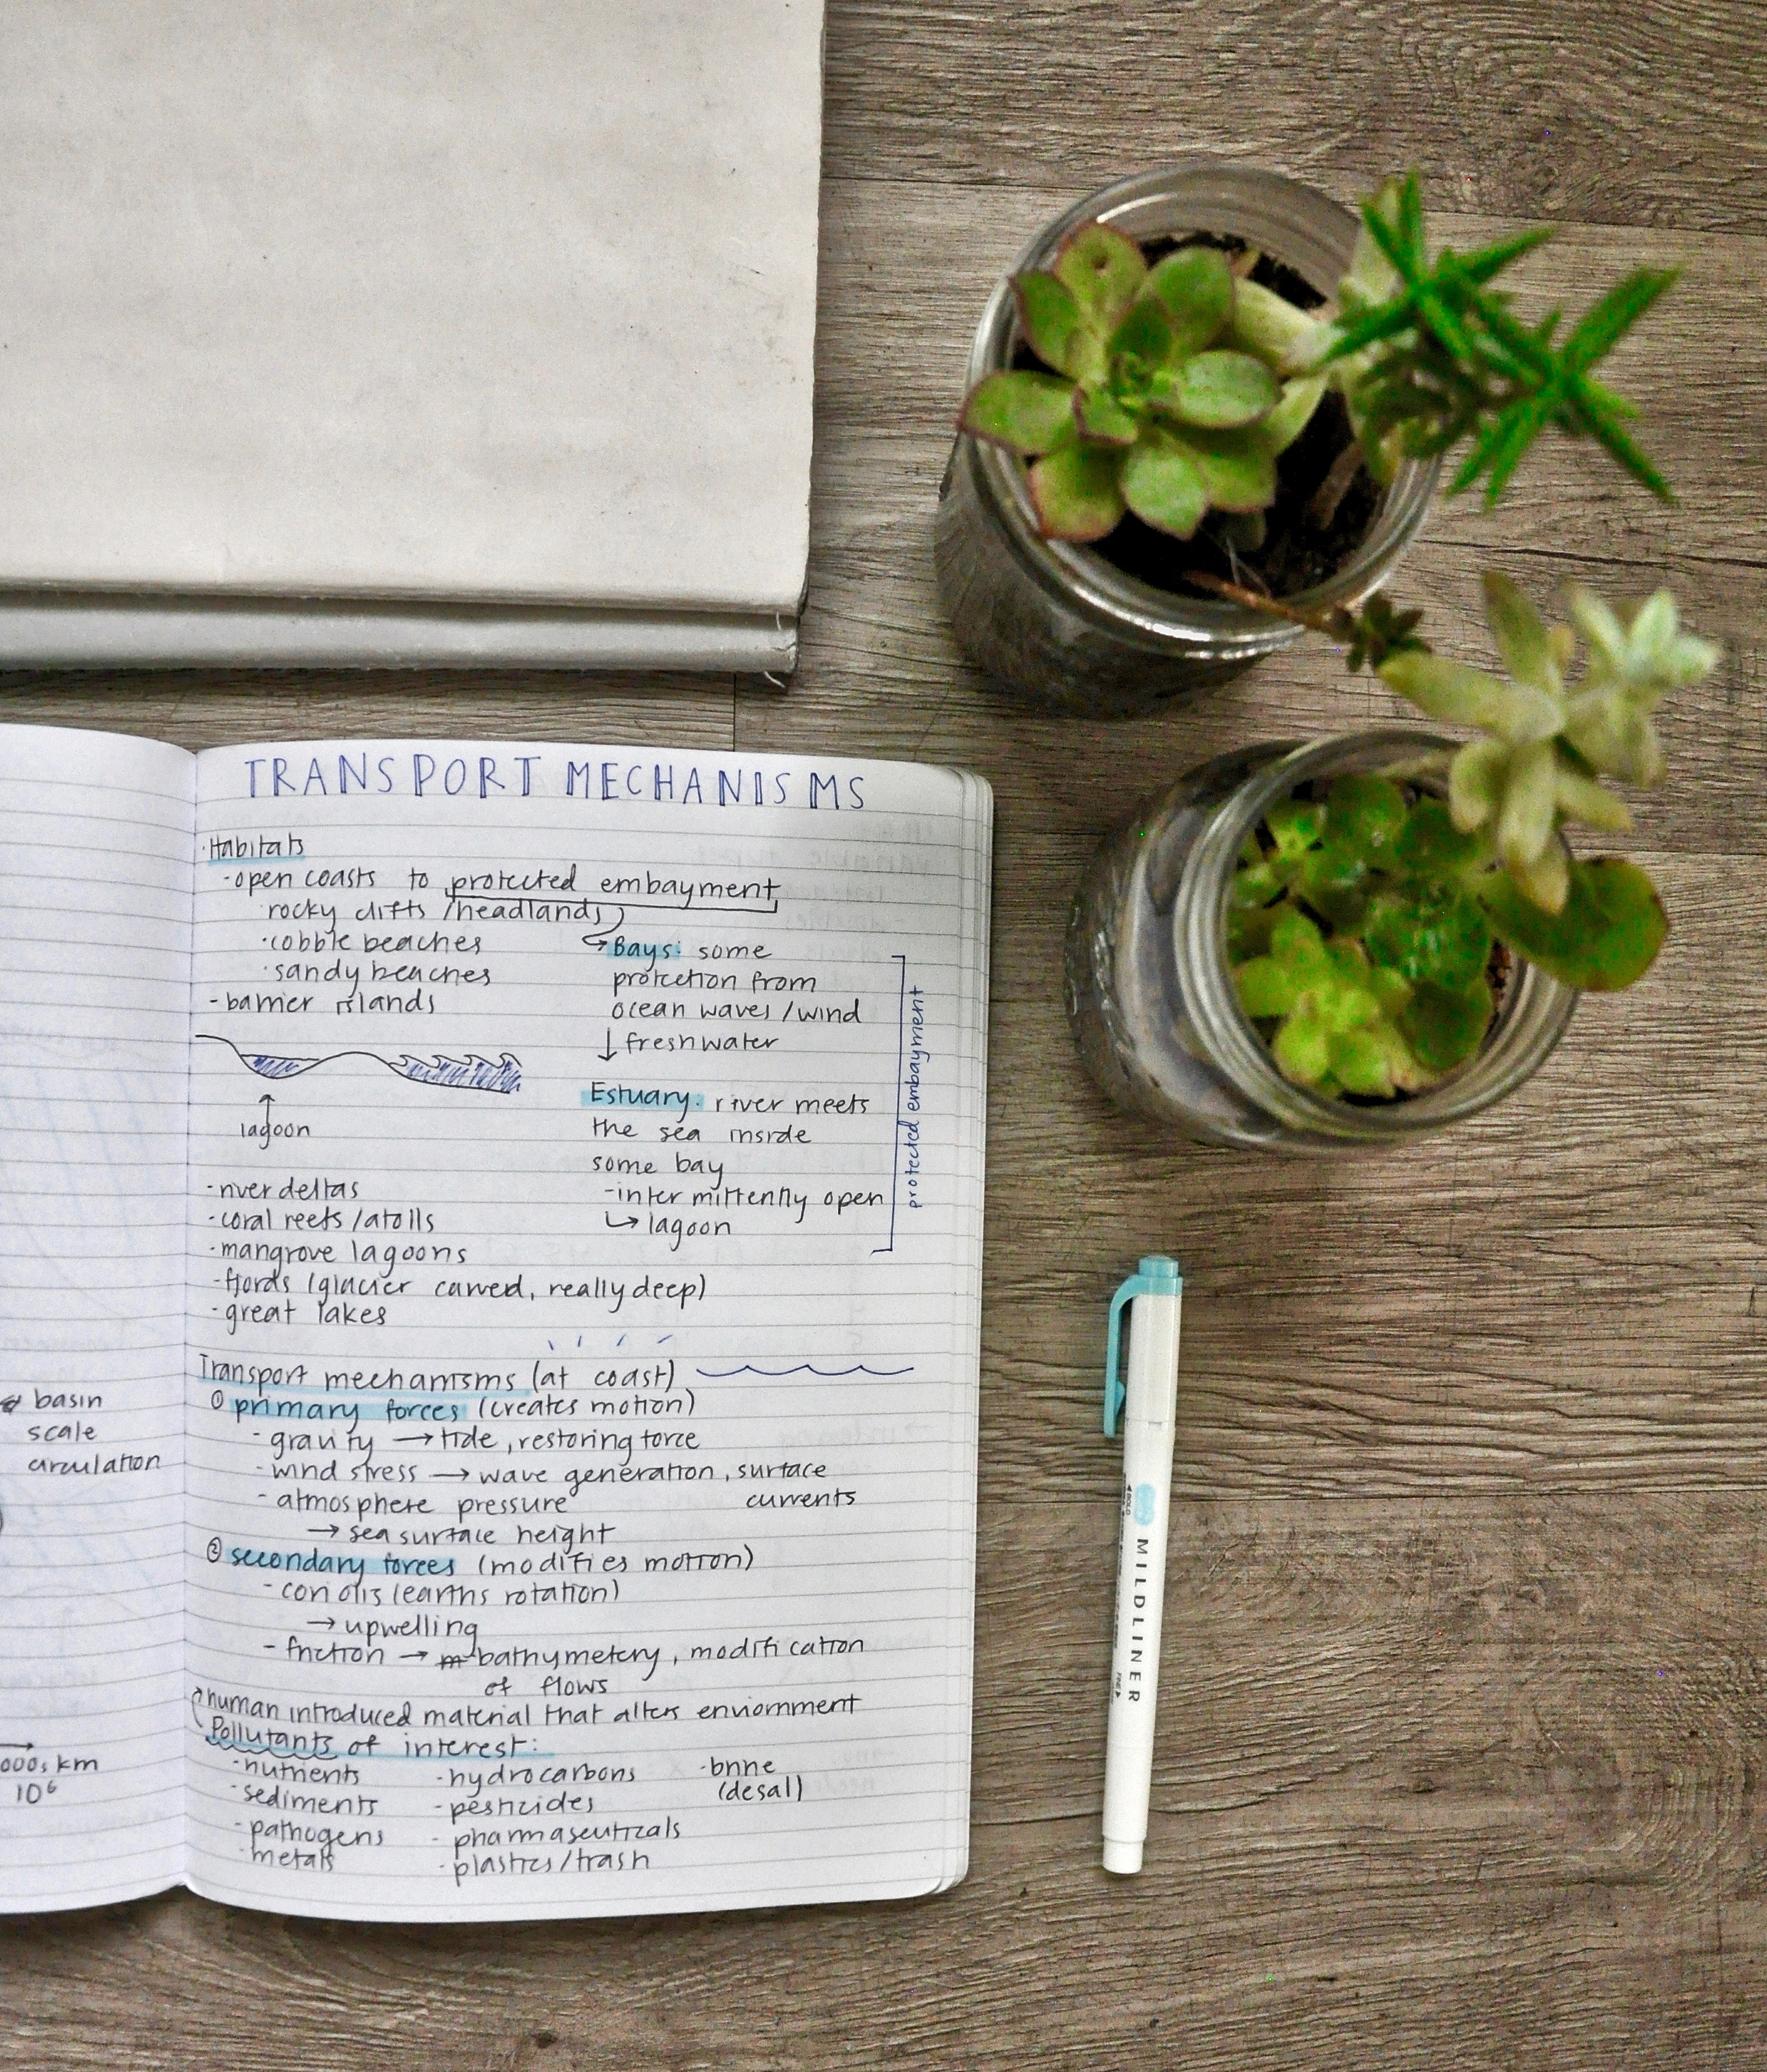 TRANSPORT MECHANISMS
·Habitats
-open coasts to protected embayment
rocky clifts /headlands
·cobble beaches
·sandy beaches
-barrier islands
Bays: some
protection from
ocean waves /wind
↓ freshwater
Estuary: river meets
the sea inside
some bay
-intermittently open
↳ lagoon
protected embayment
lagoon
-river deltas
-coral reefs /atolls
-mangrove lagoons
-fjords (glacier carved, really deep)
-great lakes
Transport mechanisms (at coast)
① primary forces (creates motion)
- gravity → tide, restoring force
-wind stress → wave generation, surface
currents
- atmosphere pressure
→ sea surface height
② secondary forces (modifies motion)
- coriolis (earths rotation)
→ upwelling
- friction → bathymetery, modification
of flows
human introduced material that alters enviornment
Pollutants of interest:
-nutrients
-sediments
-pathogens
-metals
-hydrocarbons
-pesticides
- pharmaseuticals
-plastics/trash
-brine
(desal)
basin
scale
circulation
000s km
10⁶
MILDLINER